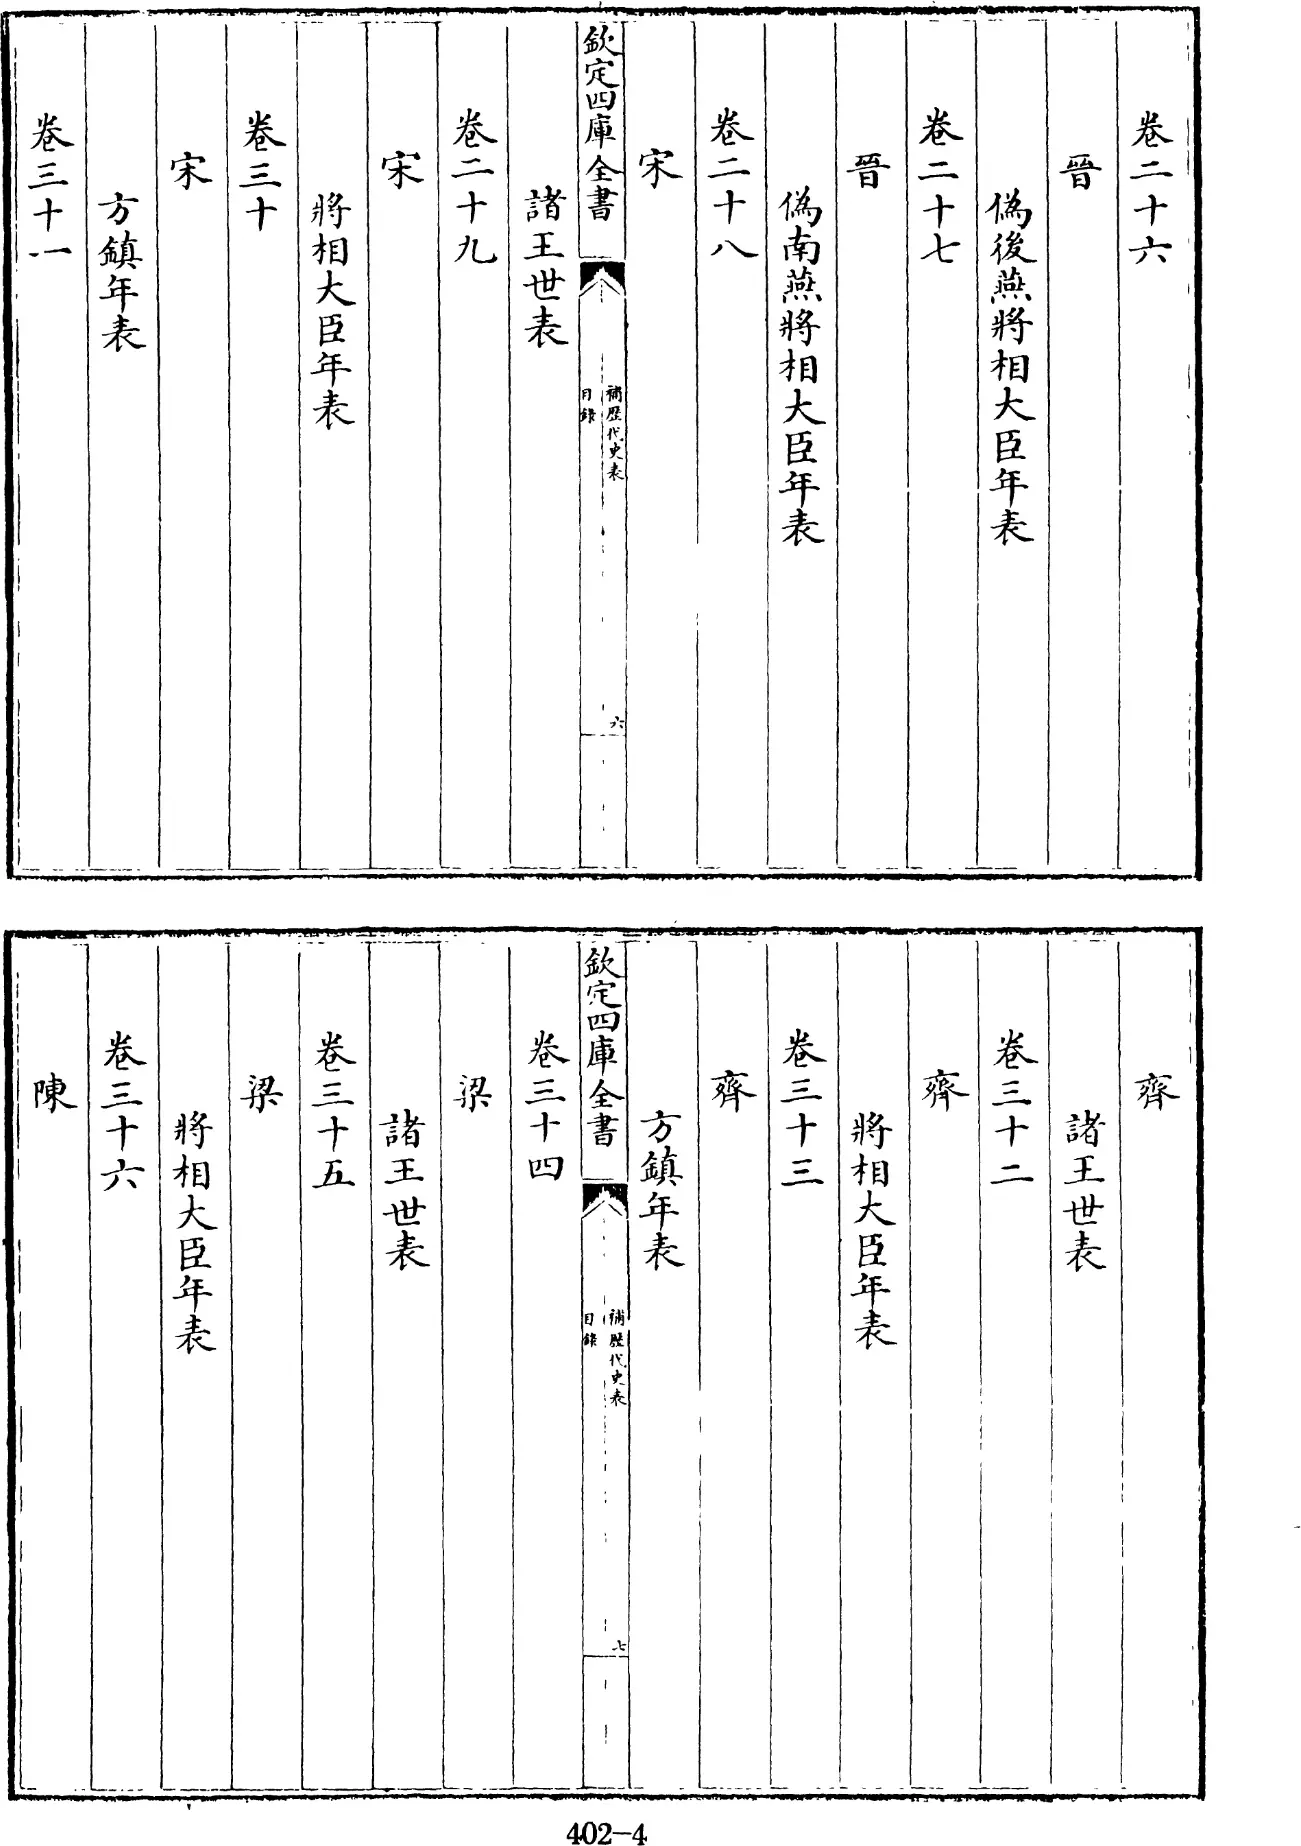 卷二十六
晉
偽後燕將相大臣年表
卷二十七
晉
偽南燕將相大臣年表
卷二十八
宋
欽定四庫全書
補歷代史表
目錄
六
諸王世表
卷二十九
宋
將相大臣年表
卷三十
宋
方鎮年表
卷三十一
齊
諸王世表
卷三十二
齊
將相大臣年表
卷三十三
齊
方鎮年表
欽定四庫全書
補歷代史表
目錄
七
卷三十四
梁
諸王世表
卷三十五
梁
將相大臣年表
卷三十六
陳
402-4